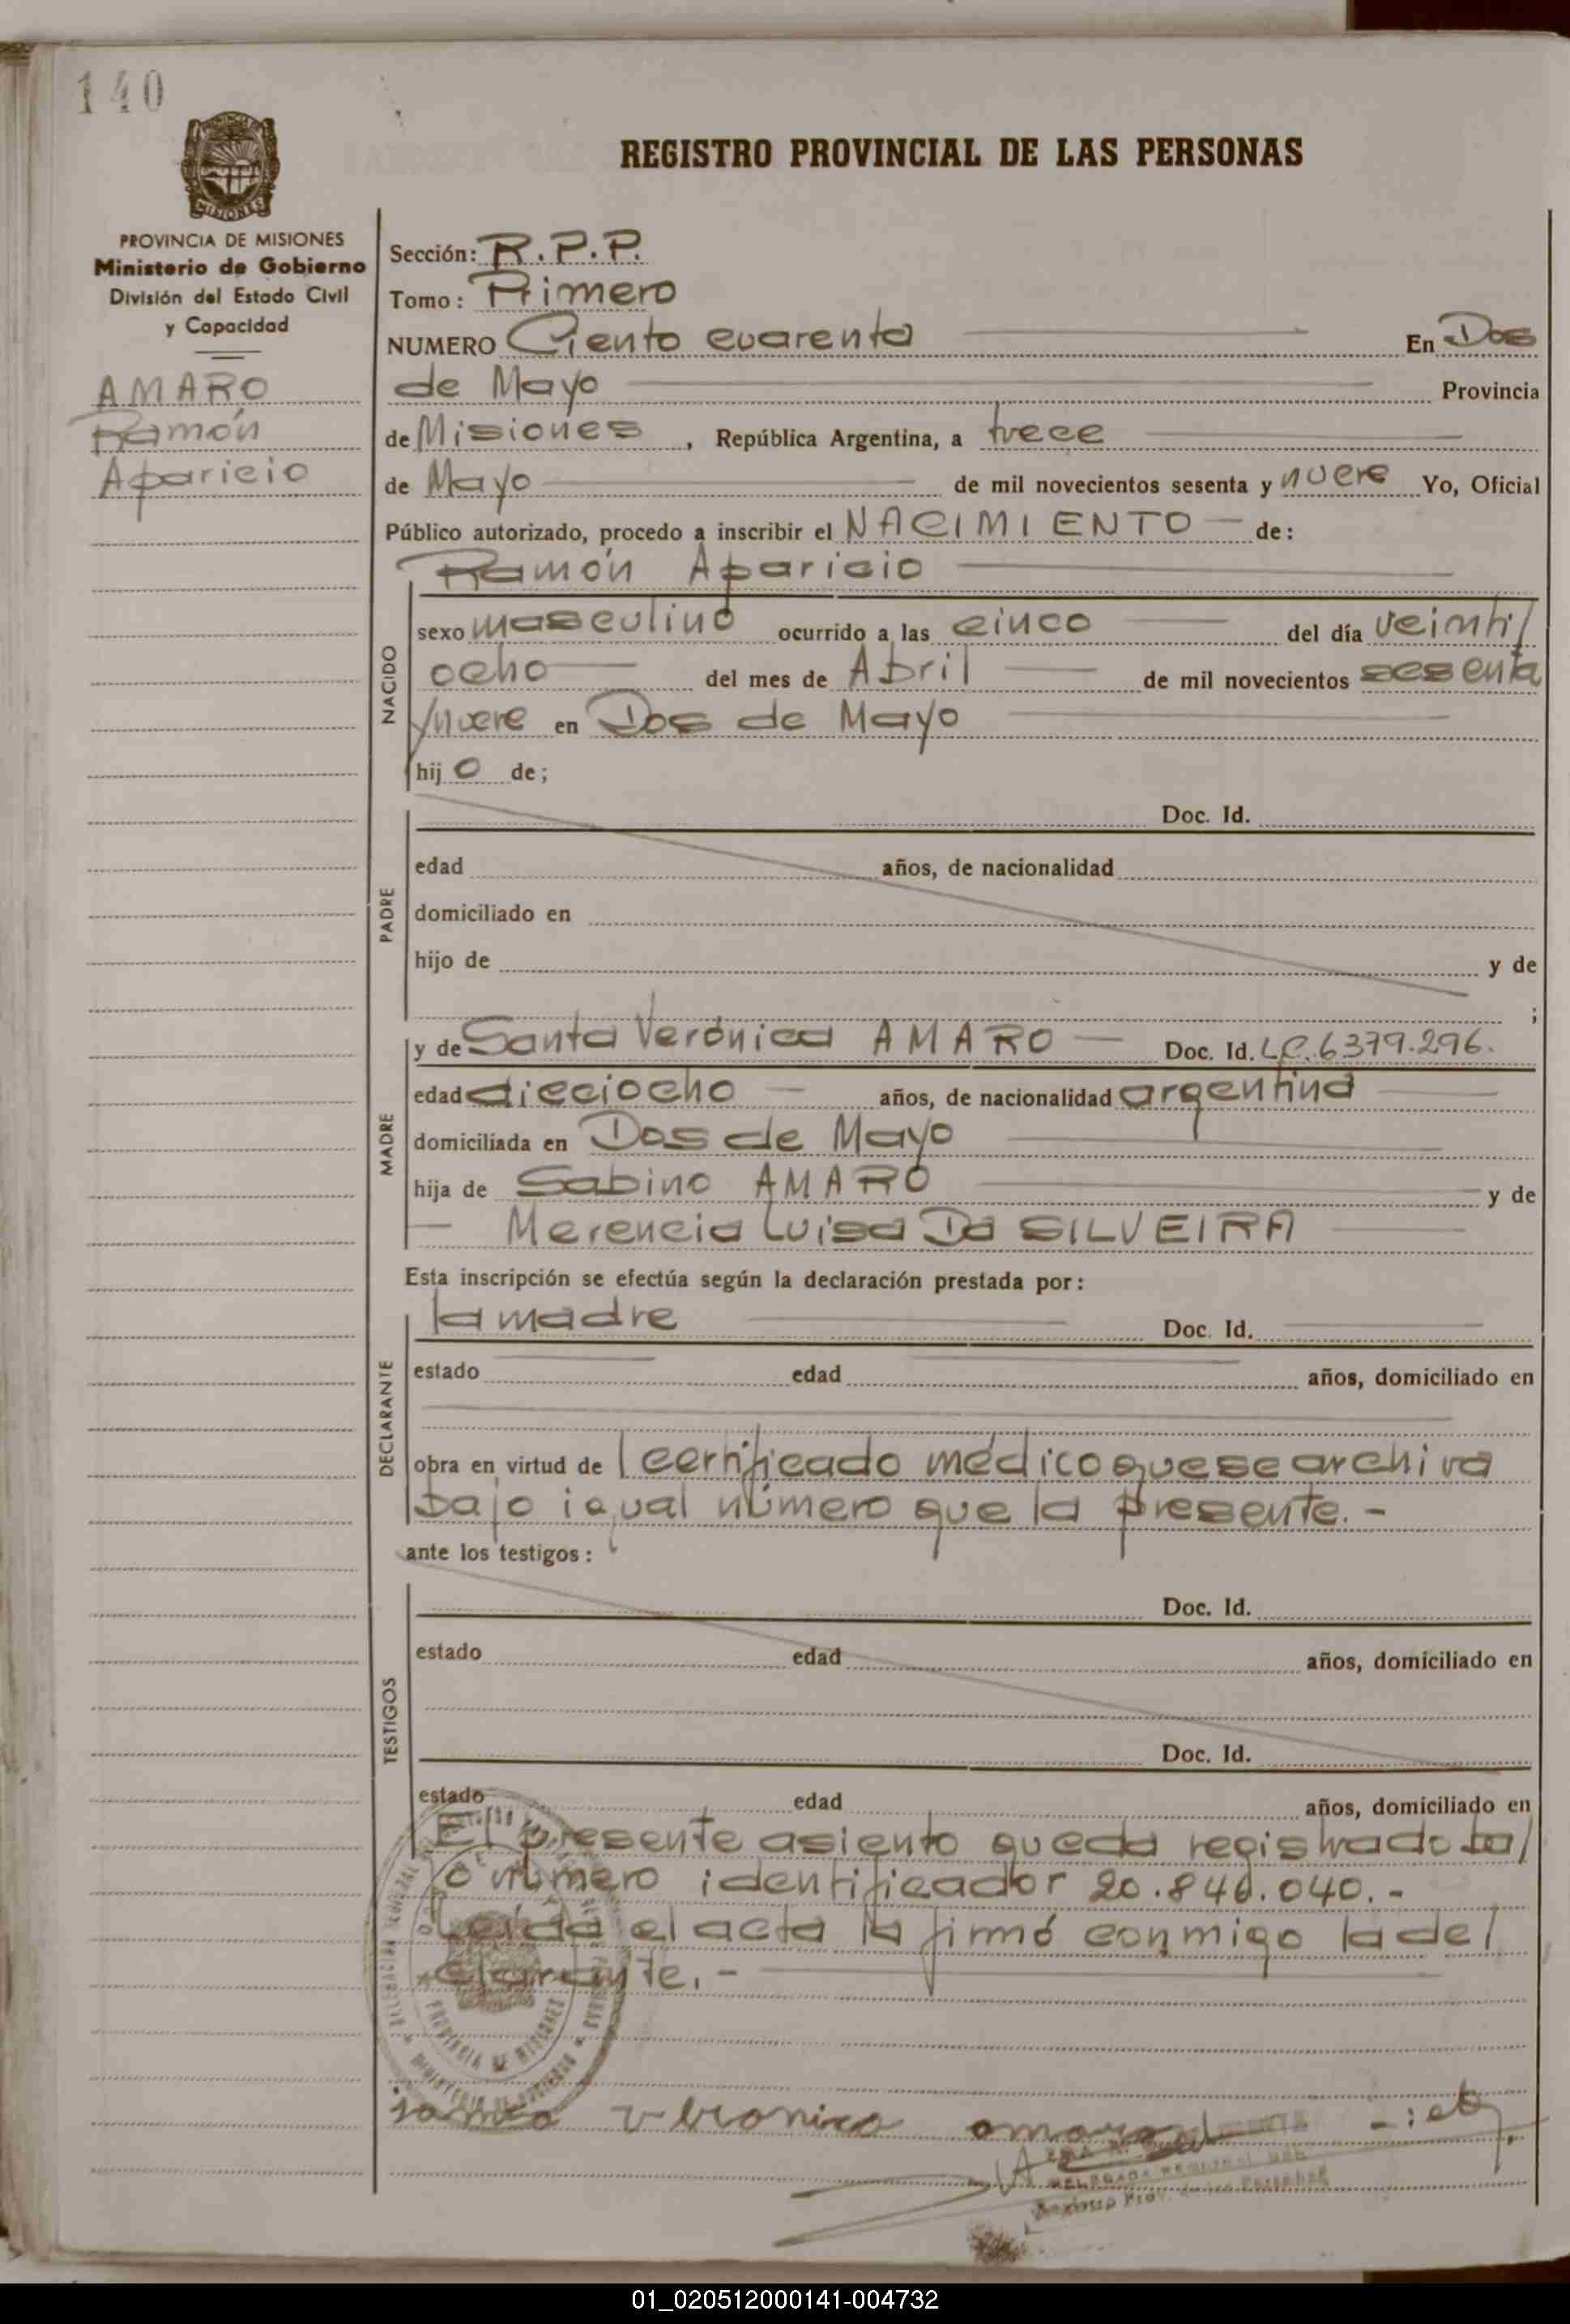 140
REGISTRO PROVINCIAL DE LAS PERSONAS
MISIONES
PROVINCIA DE MISIONES
Ministerio de Gobierno
División del Estado Civil
y Capacidad
AMARO
Ramón
Aparicio
Sección: R.P.P.
Tomo: Primero
NUMERO Ciento cuarenta En Dos
de Mayo Provincia
de Misiones, República Argentina, a trece
de Mayo de mil novecientos sesenta y nueve Yo, Oficial
Público autorizado, procedo a inscribir el NACIMIENTO de:
Ramón Aparicio
NACIDO
sexo masculino ocurrido a las cinco del día veinti/
ocho del mes de Abril de mil novecientos sesenta
y nueve en Dos de Mayo
hijo de;
PADRE
Doc. Id.
edad años, de nacionalidad
domiciliado en
hijo de y de
;
MADRE
y de Santa Verónica AMARO Doc. Id. L.C. 6379.296.
edad dieciocho años, de nacionalidad argentina
domiciliada en Dos de Mayo
hija de Sabino AMARO y de
Merencia Luisa Da SILVEIRA
Esta inscripción se efectúa según la declaración prestada por:
DECLARANTE
la madre Doc. Id.
estado edad años, domiciliado en
obra en virtud de l certificado médico que se archiva
bajo igual número que la presente.-
ante los testigos:
TESTIGOS
Doc. Id.
estado edad años, domiciliado en
Doc. Id.
estado edad años, domiciliado en
El presente asiento queda registrado ba/
o número identificador 20.840.040.-
Leída el acta la firmó conmigo la de/
clarante.-
PROVINCIA DE MISIONES
MINISTERIO DE GOBIERNO
santa veronica amaro
DELEGADA REGIONAL DEL
Registro Prov. de las Personas
01_020512000141-004732